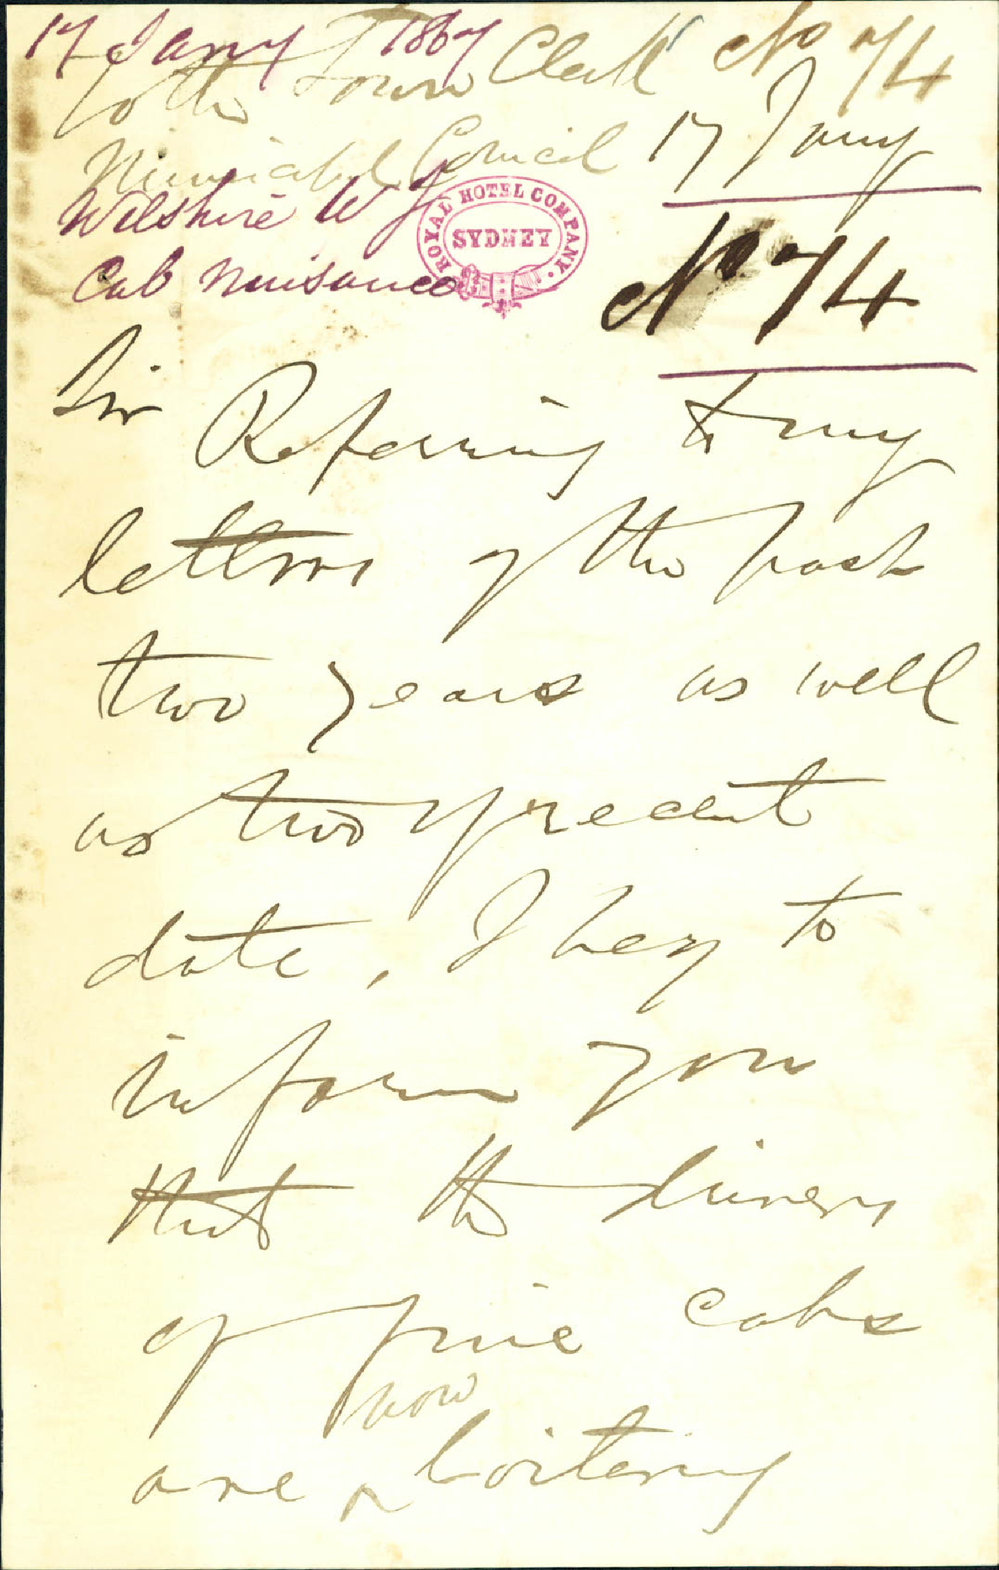 17 Jany 1867
To the Town Clerk No 74
Municipal Council 17 Jany
Wilshire W J
Cab Nuisance
ROYAL HOTEL COMPANY
SYDNEY
No 74
Sir Referring to my
letters of the past
two years as well
as two of recent
date, I beg to
inform you
that the drivers
of five cabs
now
are ^ loitering